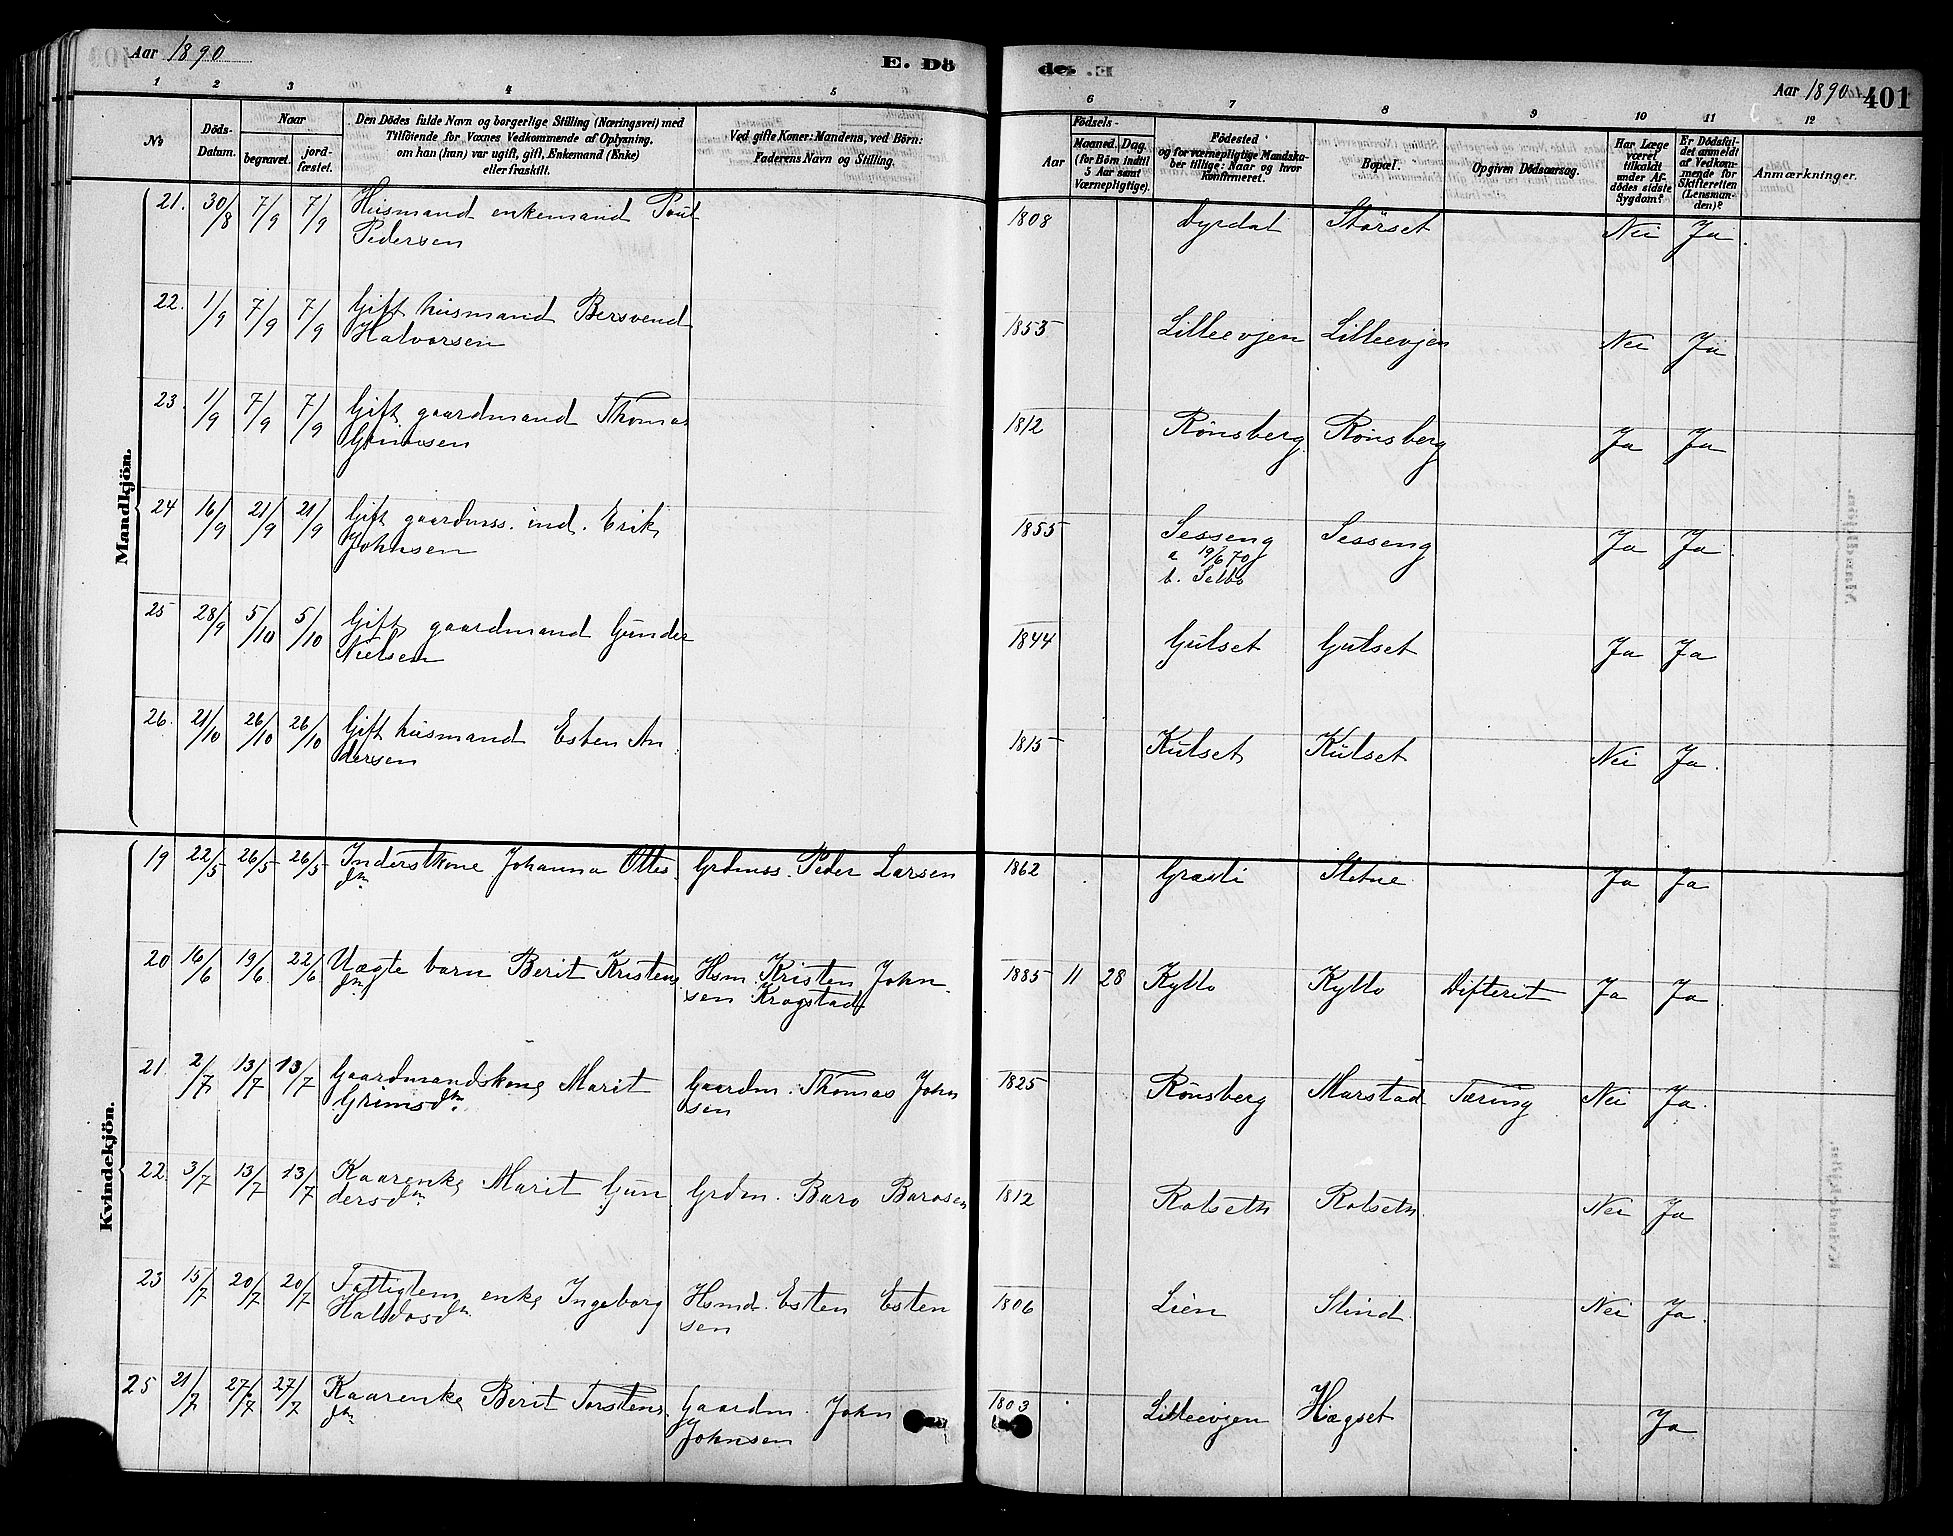 Aar 1890
E. Dö
de. E.
Aar 1890
401
1 2 3 4 5 6 7 8 9 10 11 12
No
Döds-Datum.
Naar
begravet.
jord-fæstet.
Den Dödes fulde Navn og borgerlige Stilling (Næringsvei) med
Tilföiende for Voxnes Vedkommende af Oplysning,
om han (hun) var ugift, gift, Enkemand (Enke)
eller fraskilt.
Ved gifte Koner: Mandens, ved Börn:
Faderens Navn og Stilling.
Födsels-
Aar
Maaned. Dag.
(for Börn indtil
5 Aar samt
Værnepligtige).
Födested
og for værnepligtige Mandska-
ber tillige: Naar og hvor
konfirmeret.
Bopæl.
Opgiven Dödsaarsag.
Har Læge
været
tilkaldt
under Af-
dödes sidste
Sygdom?
Er Dödsfal-
det anmeldt
af Vedkom-
mende for
Skifteretten
(Lensman-
den)?
Anmærkninger.
Mandkjön.
21. 30/8 7/9 7/9 Husmand enkemand Poul
Pedersen
1808 Dyrdal Störset Nei Ja.
22. 1/9 7/9 7/9 Gift husmand Bersvend
Halvorsen
1853 Lilleevjen Lilleevjen Nei Ja
23. 1/9 7/9 7/9 Gift gaardmand Thomas
1812 Rönsberg Rönsberg Ja Ja
24 16/9 21/9 21/9 Gift gaardmss. ind. Erik
Johnsen
1855 Sesseng Sesseng Ja Ja
19/6 70
Selbo
25 28/9 5/10 5/10 Gift gaardmand Gunder
Nielsen
1844 Gulset Gulset Ja Ja
26. 21/10 26/10 26/10 Gift husmand Esten An
dersen
1815 Kulset Kulset Nei Ja.
Kvindekjön.
19 22/5 26/5 26/5 Inderstkone Johanna Ottes
dn
Grdmss. Peder Larsen
1862 Græsli Stetne Ja Ja
20 16/6 19/6 22/6 Uægte barn Berit Kristens
dn
Hsm. Kristen John
sen Krogstad
1885 11 28 Kyllo Kyllo Difterit Ja Ja
21. 2/7 13/7 13/7 Gaardmandskone Marit
Grimsdn
Gaardm. Thomas John
sen
1825 Rönsberg Marstad Tæring Nei Ja.
22. 3/7 13/7 13/7 Kaarenke Marit Gun
dersdn
Grdm. Baro Barosen
1812 Rolseth Rolseth Nei Ja
23 15/7 20/7 20/7 Fattiglem enke Ingeborg
Haldosdn
Hsmd. Esten Esten
sen
1806 Lien Slind Nei Ja.
25 21/7 27/7 27/7 Kaarenke Berit Torstens
dn
Gaardm. John
Johnsen
1803 Lilleevjen Hægset Ja